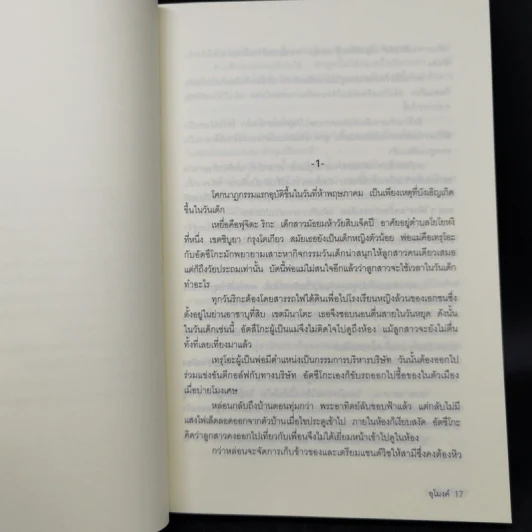 -1-
โศกนาฏกรรมแรกอุบัติขึ้นในวันที่ห้าพฤษภาคม เป็นเพียงเหตุที่บังเอิญเกิด
ขึ้นในวันเด็ก
เหยื่อคือฟุจิตะ ริกะ เด็กสาวมัธยมห้าวัยสิบเจ็ดปี อาศัยอยู่ตำบลโยโยหงิ
ที่หนึ่ง เขตชิบูยา กรุงโตเกียว สมัยเธอยังเป็นเด็กหญิงตัวน้อย พ่อแม่คือเทรุโอะ
กับอัตซึโกะมักพยายามเสาะหากิจกรรมวันเด็กน่าสนุกให้ลูกสาวคนเดียวเสมอ
แต่ก็ถึงวัยประถมเท่านั้น บัดนี้พ่อแม่ไม่สนใจอีกแล้วว่าลูกสาวจะใช้เวลาในวันเด็ก
ทำอะไร
ทุกวันริกะต้องโดยสารรถไฟใต้ดินเพื่อไปโรงเรียนหญิงล้วนของเอกชนซึ่ง
ตั้งอยู่ในย่านอาซาบุที่สิบ เขตมินาโตะ เธอจึงชอบนอนตื่นสายในวันหยุด ดังนั้น
ในวันเด็กเช่นนี้ อัตซึโกะผู้เป็นแม่จึงไม่ติดใจไปดูถึงห้อง แม้ลูกสาวจะยังไม่ตื่น
ทั้งที่เลยเที่ยงมาแล้ว
เทรุโอะผู้เป็นพ่อมีตำแหน่งเป็นกรรมการบริหารบริษัท วันนั้นต้องออกไป
ร่วมแข่งขันตีกอล์ฟกับทางบริษัท อัตซึโกะเองก็ขับรถออกไปซื้อของในตัวเมือง
เมื่อบ่ายโมงเศษ
หล่อนกลับถึงบ้านตอนทุ่มกว่า พระอาทิตย์ลับขอบฟ้าแล้ว แต่กลับไม่มี
แสงไฟเล็ดลอดออกจากตัวบ้านเมื่อไขประตูเข้าไป ภายในห้องก็เงียบสงัด อัตซึโกะ
คิดว่าลูกสาวคงออกไปเที่ยวกับเพื่อนจึงไม่ได้เยี่ยมหน้าเข้าไปดูในห้อง
กว่าหล่อนจะจัดการเก็บข้าวของและเตรียมแซนด์วิชให้สามีซึ่งคงต้องหิว
อุโมงค์ 17